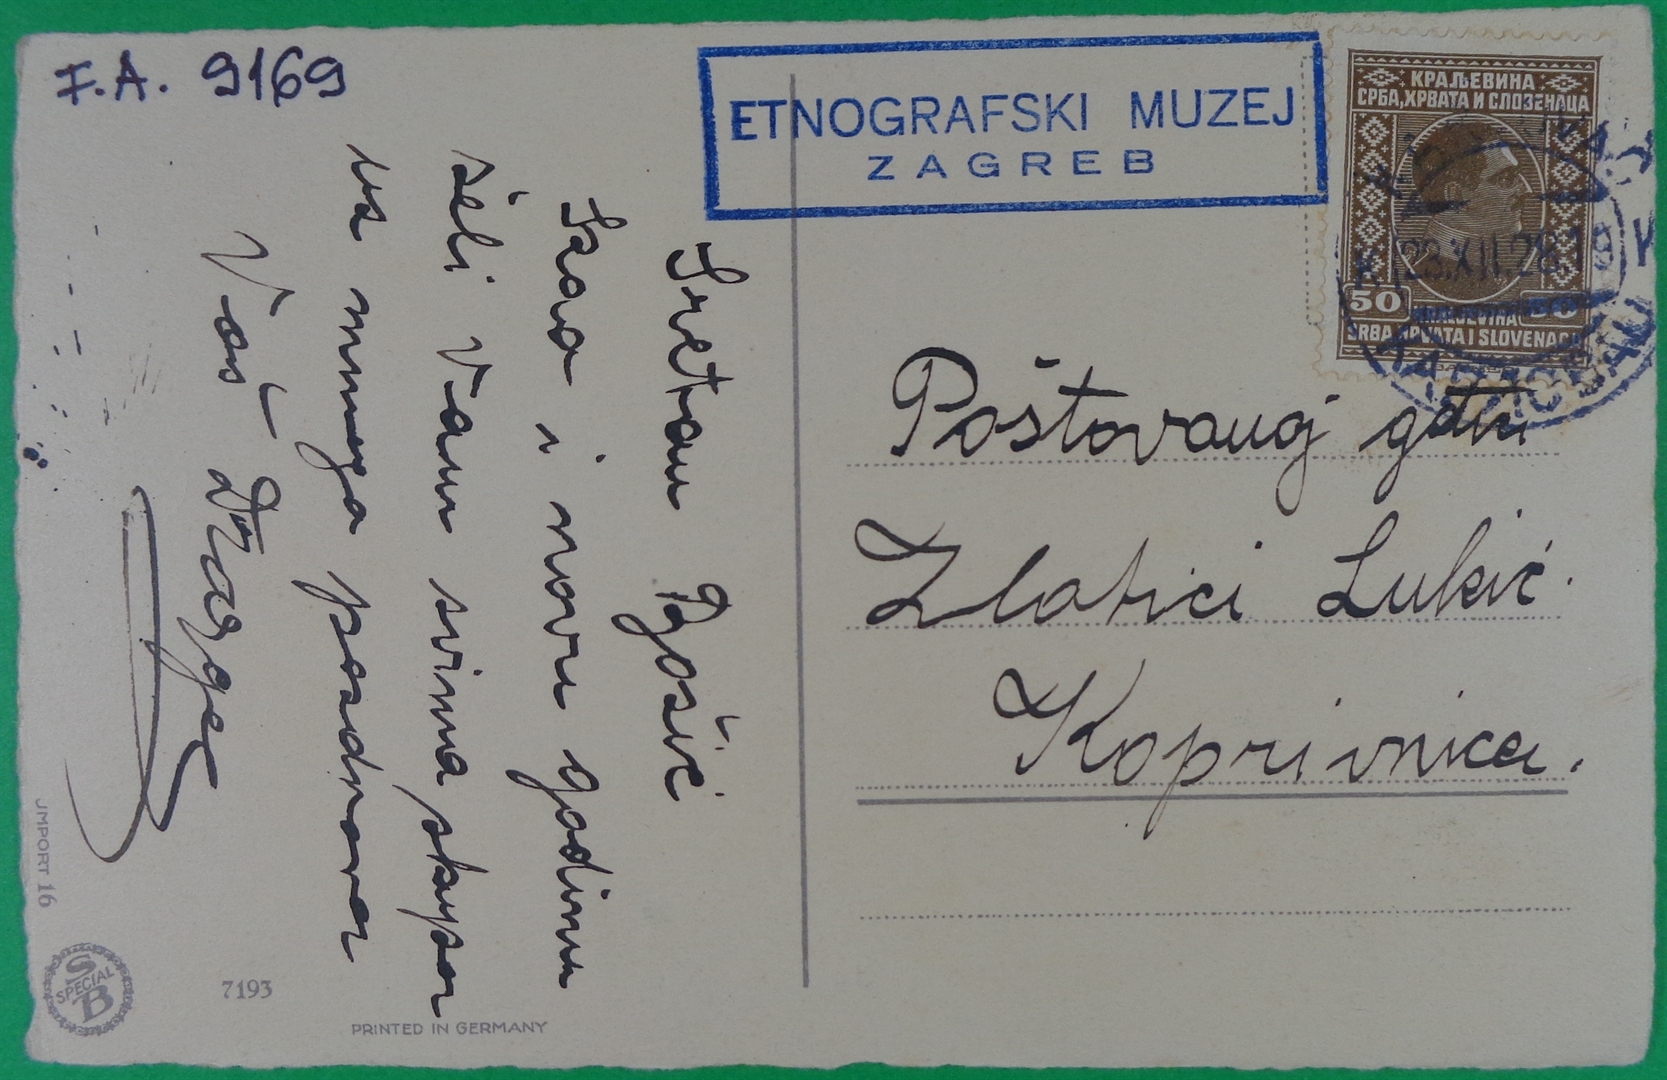 F.A. 9169
ETNOGRAFSKI MUZEJ
ZAGREB
КРАЉЕВИНА
СРБА, ХРВАТА И СЛОВЕНАЦА
23.XII.28.18
50
KRALJEVINA
SRBA, HRVATA I SLOVENACA
Sretan Božić
Srao i novu godinu
želi Vam svima skupa
uz mnogo pozdrava
Vaš Drago
Poštovanoj gđici
Zlatici Lukić.
Koprivnica.
JMPORT 16
S
SPECIAL
B
7193
PRINTED IN GERMANY